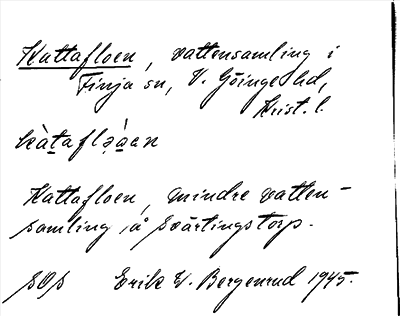 Kattafloen, vattensamling i
Finja sn, V. Göinge hd,
Krist. l.
kàtaflə̀aen
Kattafloen, mindre vatten-
samling å Svärtingstorp.
SOS Erik W. Bergenrud 1945.